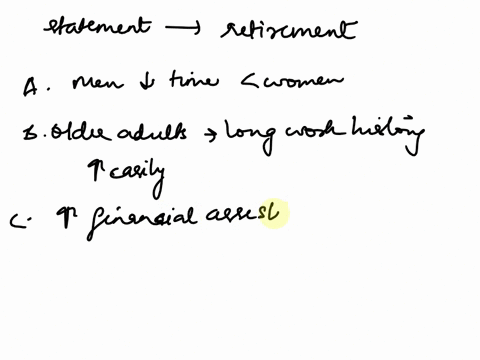 statement → retirement
A. Men ↓ time < women
B. Older adults → long work history
↑ easily
C. ↑ financial assest